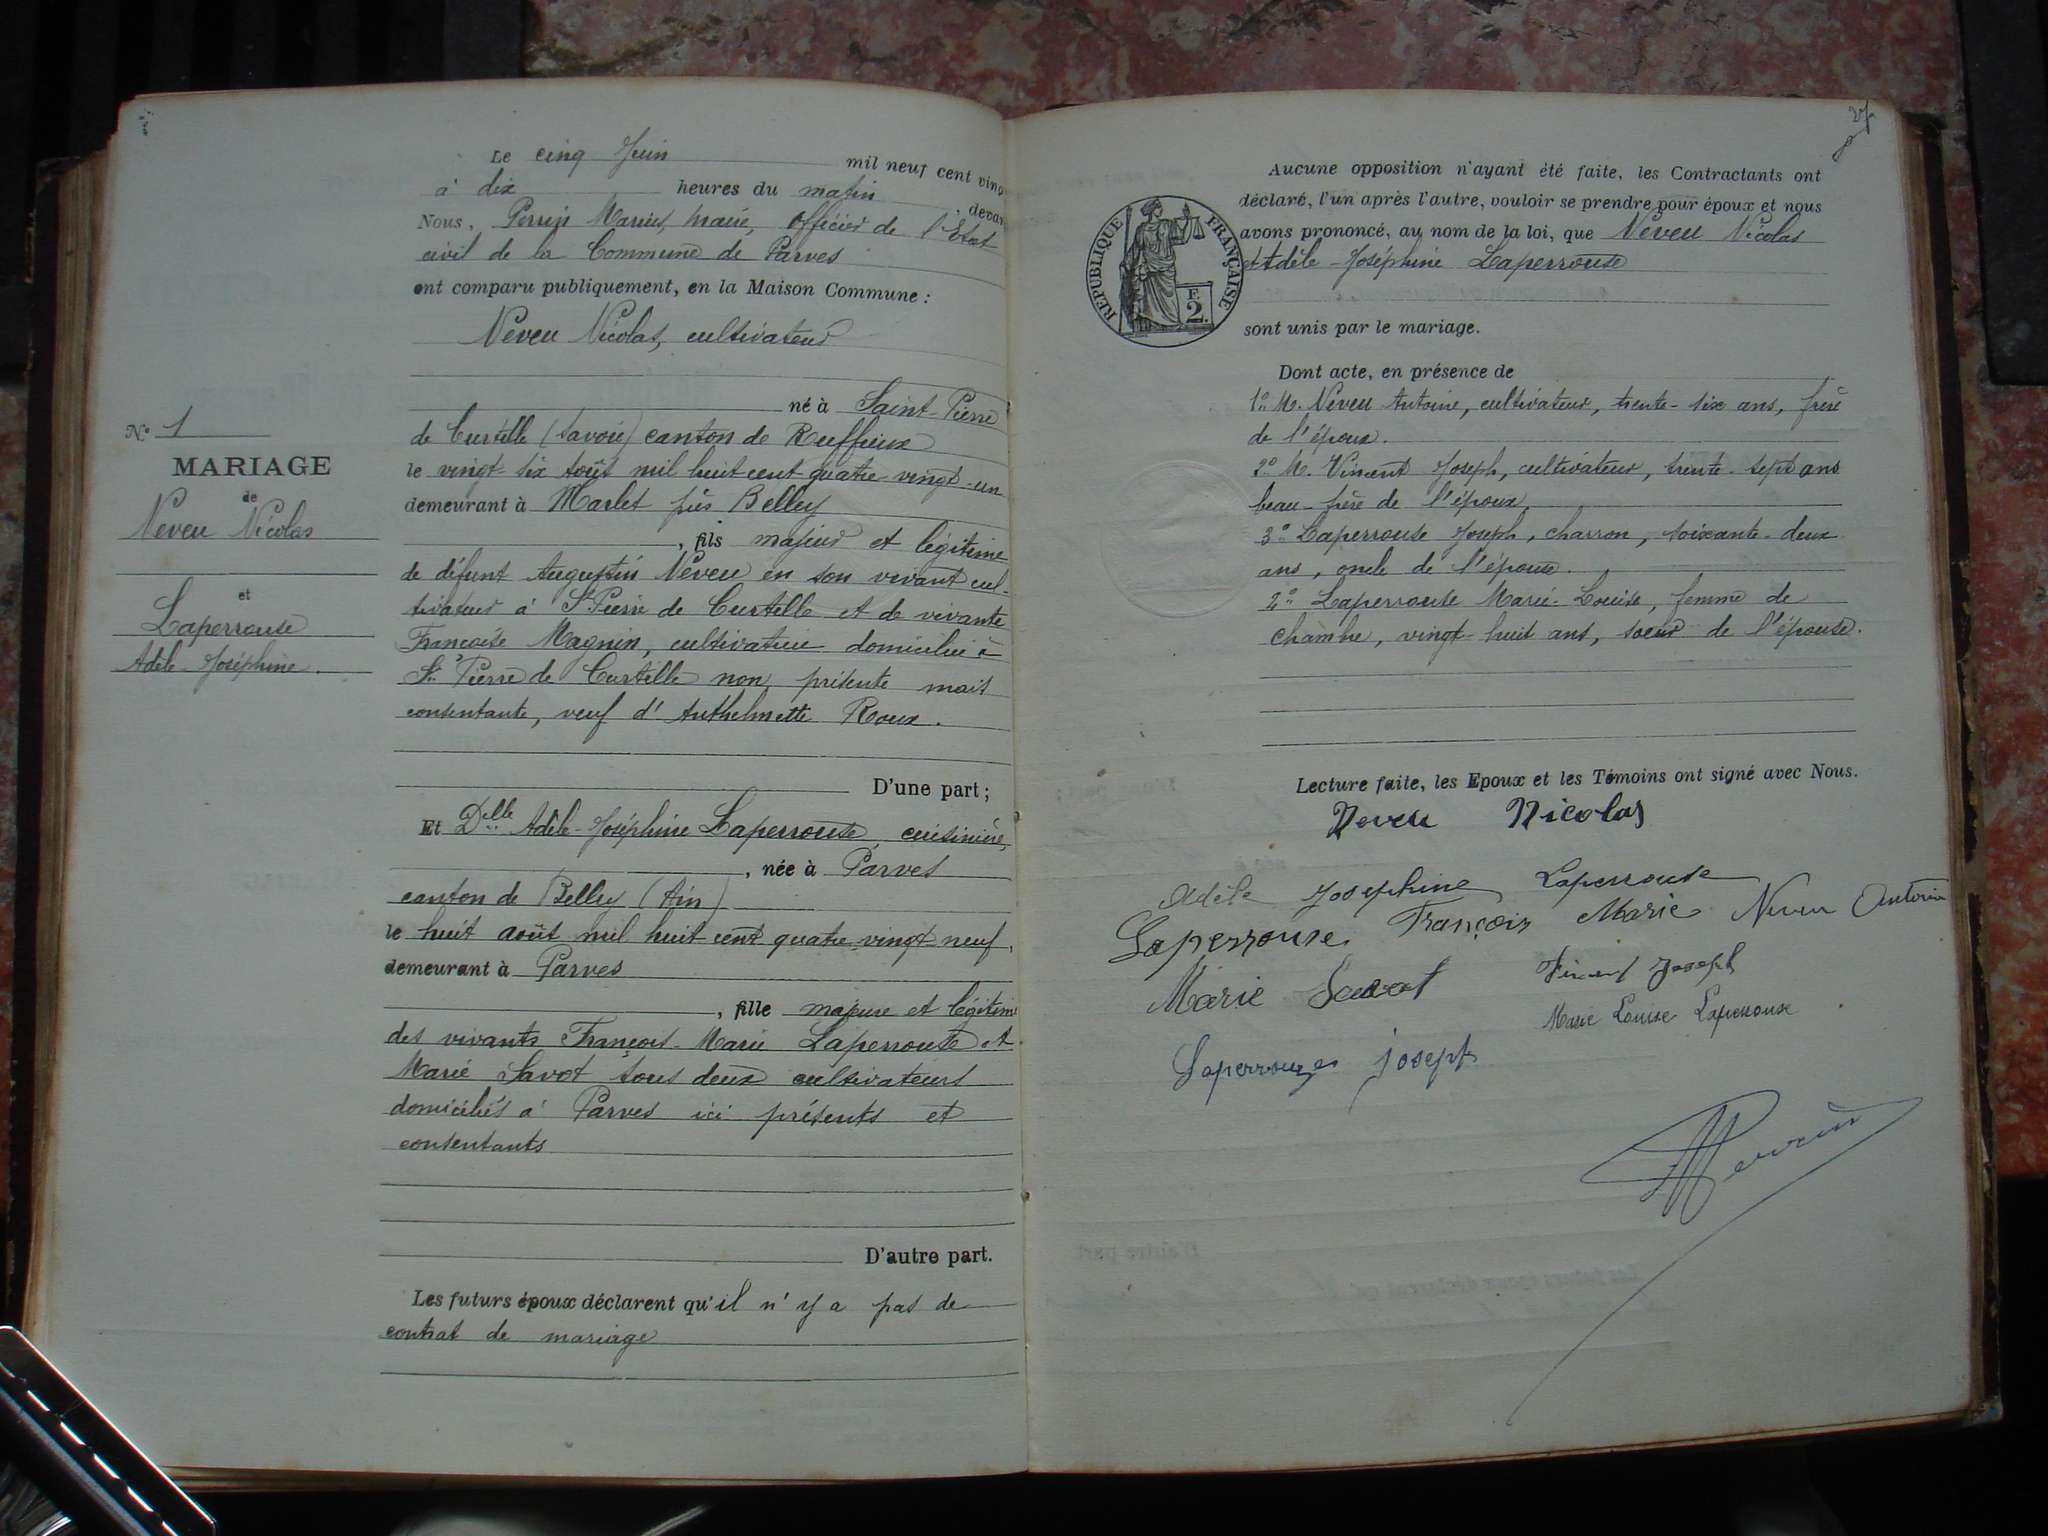 Le cinq Juin mil neuf cent vingt
à dix heures du matin, devant
Nous, Perrin Marius, maire, officier de l'Etat
civil de la Commune de Parves
ont comparu publiquement, en la Maison Commune :
Neveu Nicolas, cultivateur
né à Saint-Pierre
de Curtille (Savoie) canton de Ruffieux
le vingt-six août mil huit cent quatre-vingt-un
demeurant à Marlet près Belley
, fils majeur et légitime
de défunt Augustin Neveu en son vivant cul-
tivateur à St Pierre de Curtille et de vivante
Françoise Magnin, cultivatrice domiciliée à
St Pierre de Curtille non présente mais
consentante, veuf d'Anthelmette Roux.
D'une part ;
N° 1
MARIAGE
de
Neveu Nicolas
et
Laperrouse
Adèle-Joséphine.
Et Delle Adèle-Joséphine Laperrouse, cuisinière,
, née à Parves
canton de Belley (Ain)
le huit août mil huit cent quatre vingt neuf,
demeurant à Parves
, fille majeure et légitime
des vivants François-Marie Laperrouse et
Marie Savot tous deux cultivateurs
domiciliés à Parves ici présents et
consentants
D'autre part.
Les futurs époux déclarent qu'il n'y a pas de
contrat de mariage
Aucune opposition n'ayant été faite, les Contractants ont
déclaré, l'un après l'autre, vouloir se prendre pour époux et nous
avons prononcé, au nom de la loi, que Neveu Nicolas
et Adèle-Joséphine Laperrouse
sont unis par le mariage.
REPUBLIQUE FRANÇAISE
F.
2.
Dont acte, en présence de
1° M. Neveu Antoine, cultivateur, trente-six ans, frère
de l'époux.
2° M. Vincent Joseph, cultivateur, trente-sept ans
beau-frère de l'époux
3° Laperrouse Joseph, charron, soixante-deux
ans, oncle de l'épouse.
4° Laperrouse Marie-Louise, femme de
chambre, vingt-huit ans, soeur de l'épouse.
Lecture faite, les Epoux et les Témoins ont signé avec Nous.
Neveu Nicolas
Adèle Josephine Laperrouse
Laperrouse François Marie Neveu Antoine
Marie Savot Vincent Joseph
Marie Louise Laperrouse
Laperrouze joseph
Perrin